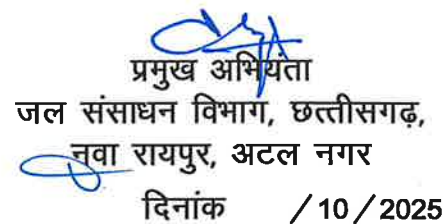 प्रमुख अभियंता
जल संसाधन विभाग, छत्तीसगढ़,
नवा रायपुर, अटल नगर
दिनांक /10/2025